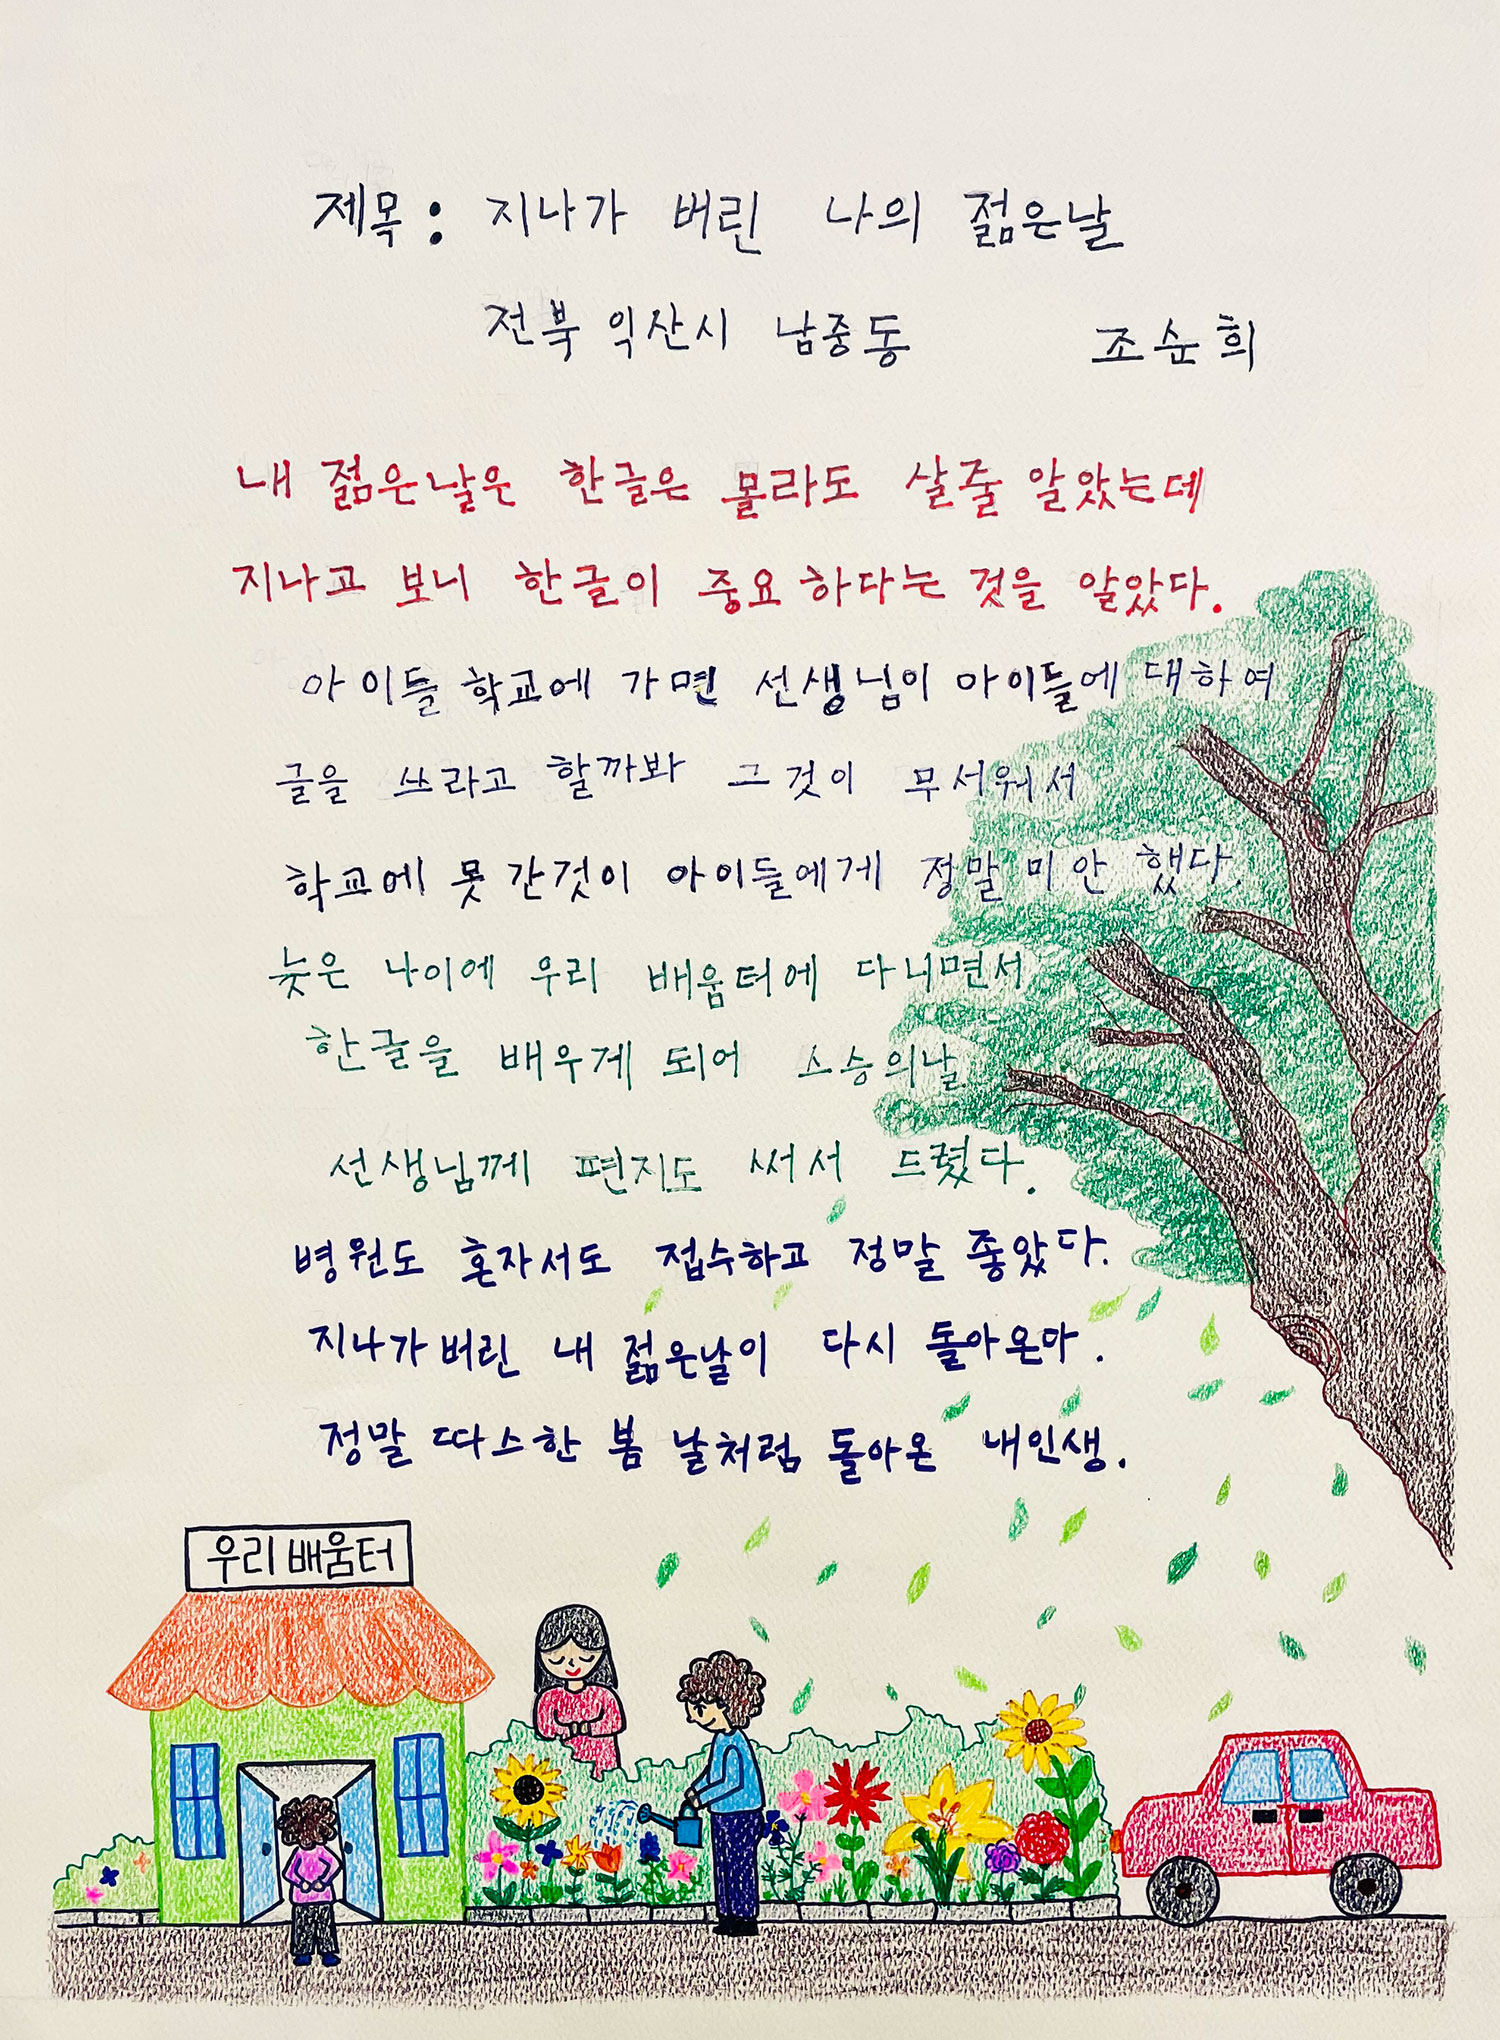 제목: 지나가 버린 나의 젊은날
전북 익산시 남중동 조순희
내 젊은날은 한글은 몰라도 살줄 알았는데
지나고 보니 한글이 중요하다는 것을 알았다.
아이들 학교에 가면 선생님이 아이들에 대하여
글을 쓰라고 할까봐 그것이 무서워서
학교에 못 간것이 아이들에게 정말 미안 했다.
늦은 나이에 우리 배움터에 다니면서
한글을 배우게 되어 스승의날
선생님께 편지도 써서 드렸다.
병원도 혼자서도 접수하고 정말 좋았다.
지나가버린 내 젊은날이 다시 돌아온다.
정말 따스한 봄 날처럼 돌아온 내인생.
우리배움터